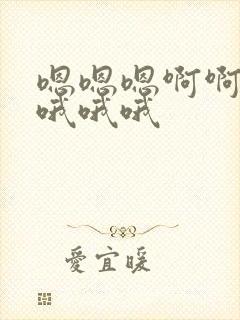 嗯嗯嗯啊啊
哦哦哦
愛宜暖